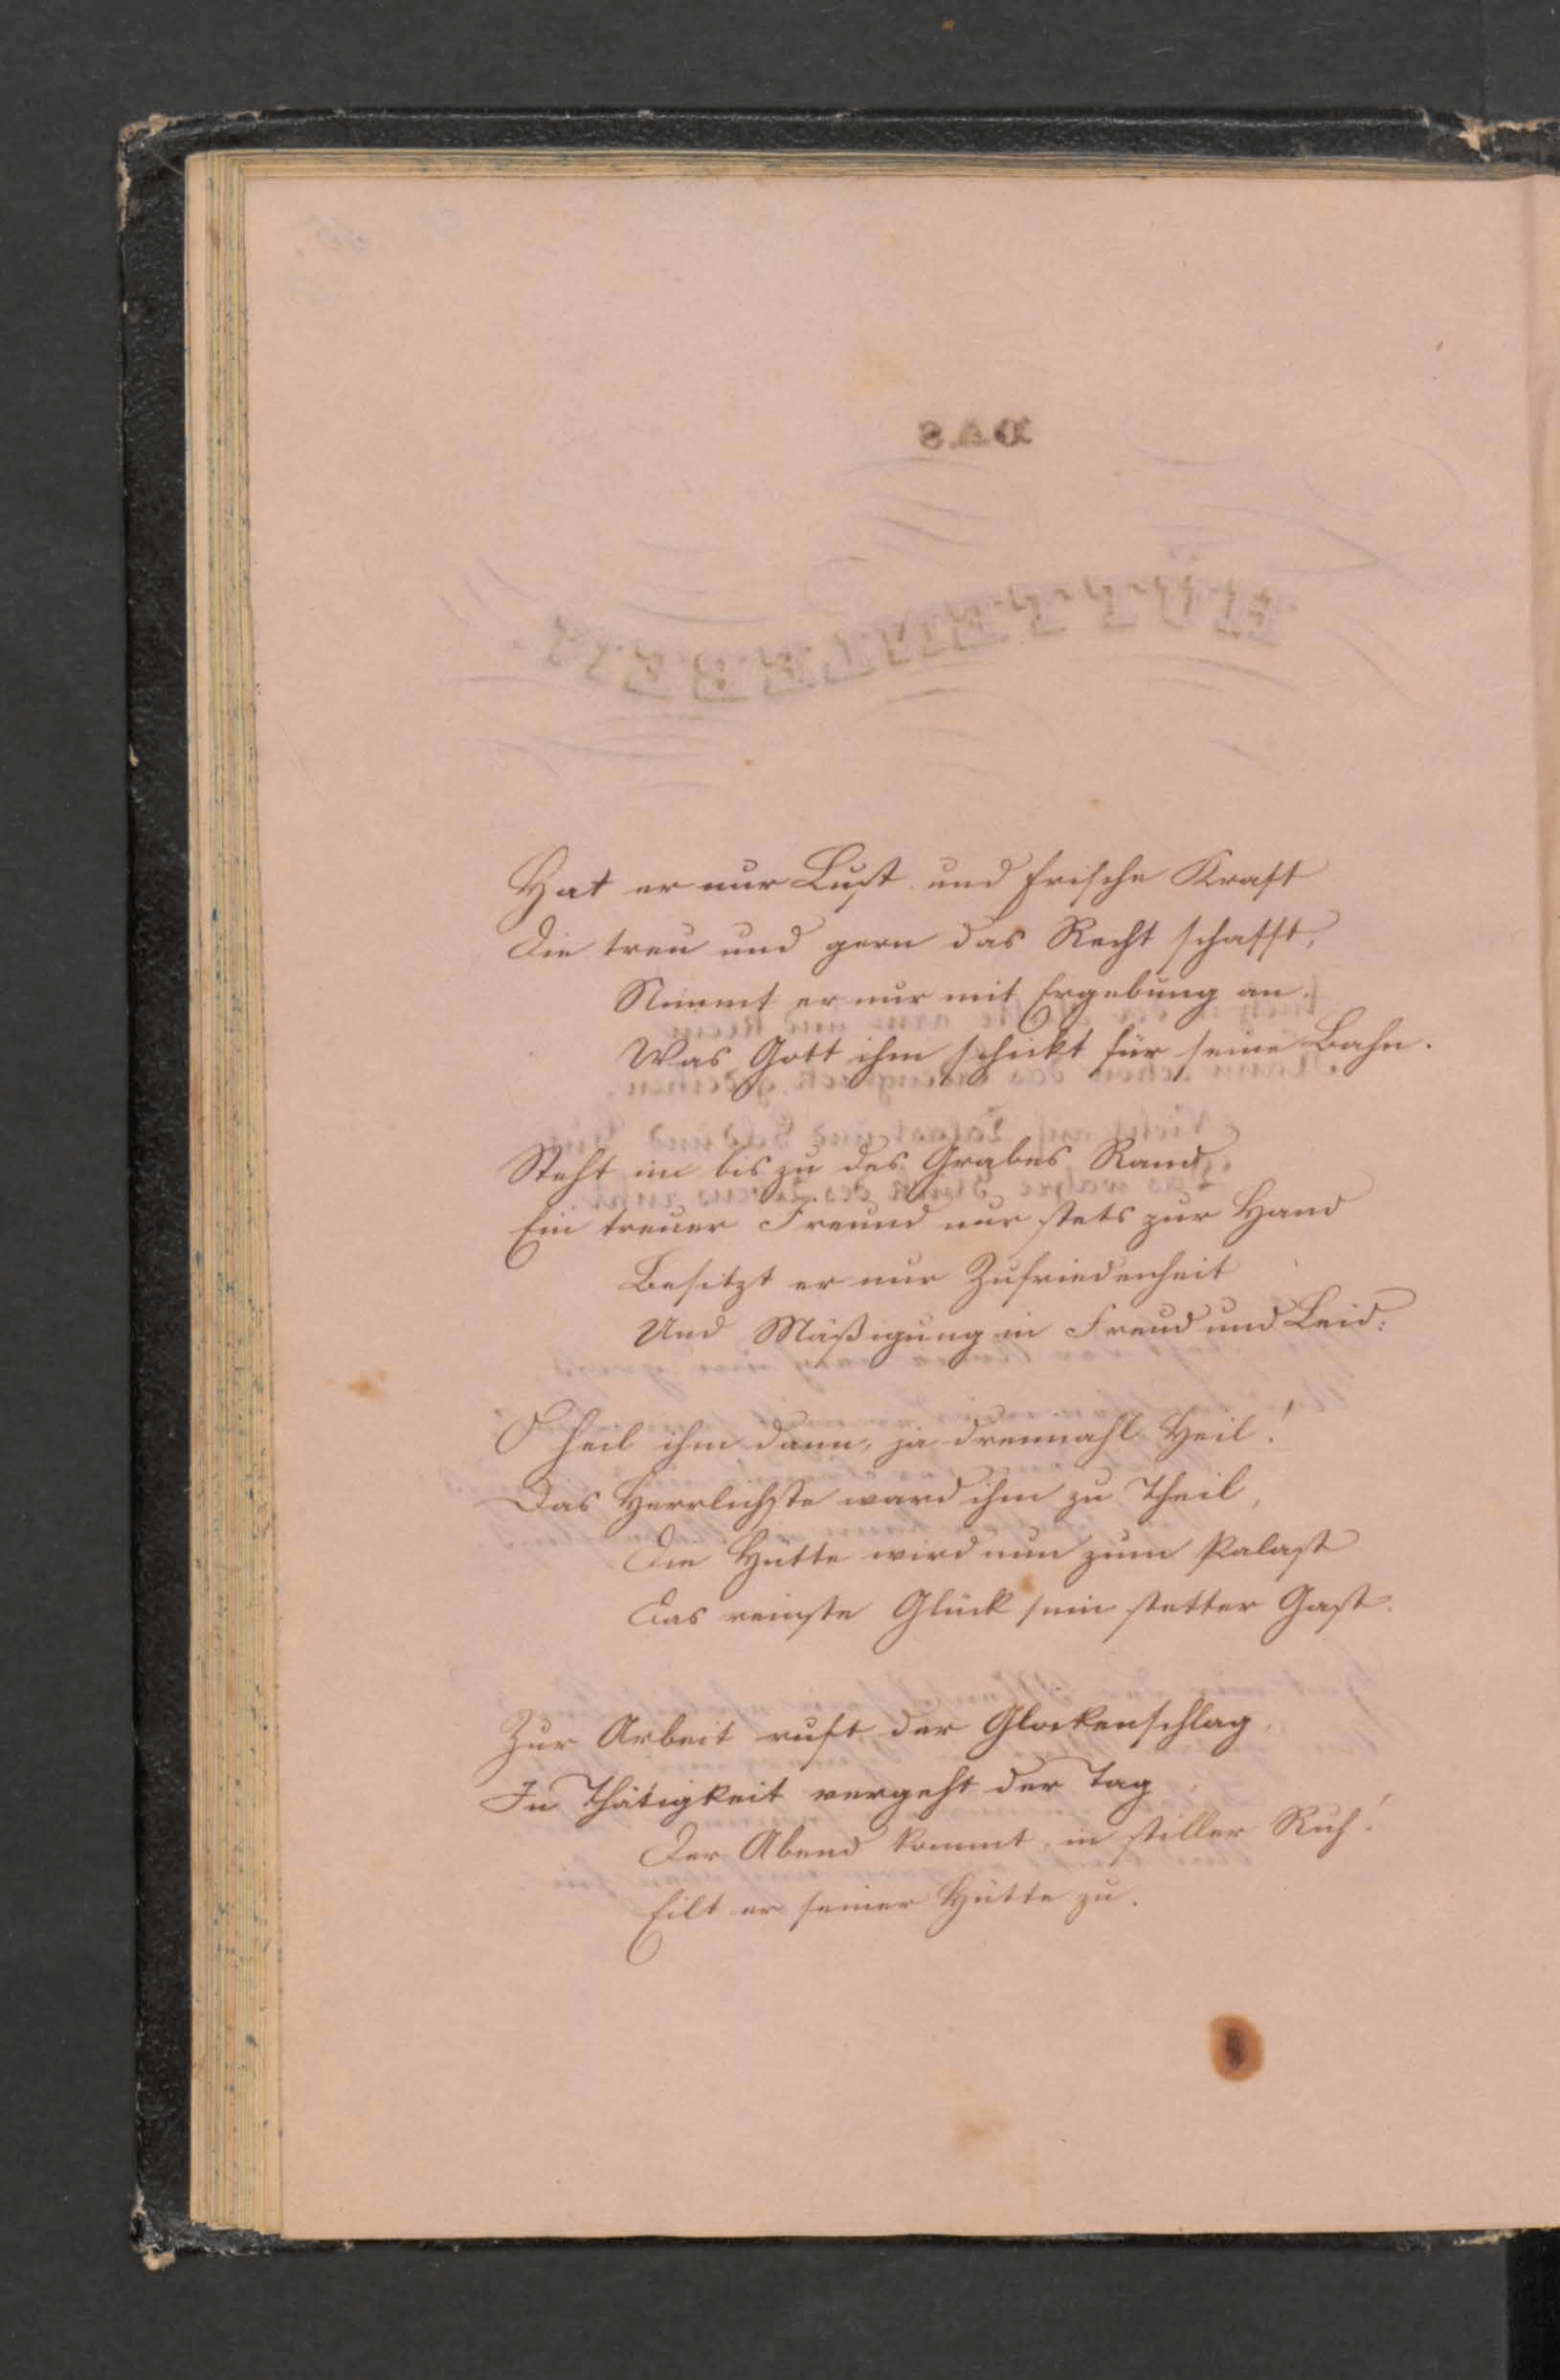 Hat er nur Lust und frische Kraft
Die treu und gern das Recht schafft,
Nimmt er nur mit Ergebung an.
Was Gott ihm schickt für seine Bahn.
Steht im bis zu des Grabes Rand,
Ein treuer Freund nur stets zur Hand
Besitzt er nur Zufriedenheit
Und Mäßigung in Freud und Leid:
O heil ihm dann, ja dreimahl Heil!
Das Herrlichste ward ihm zu Theil,
Die Hütte wird nun zum Palast
Das reinste Glück sein stetter Gast.
Zur Arbeit ruft der Glockenschlag,
In Thätigkeit vergeht der Tag,
Der Abend kommt, in stiller Ruh!
Eilt er seiner Hütte zu.